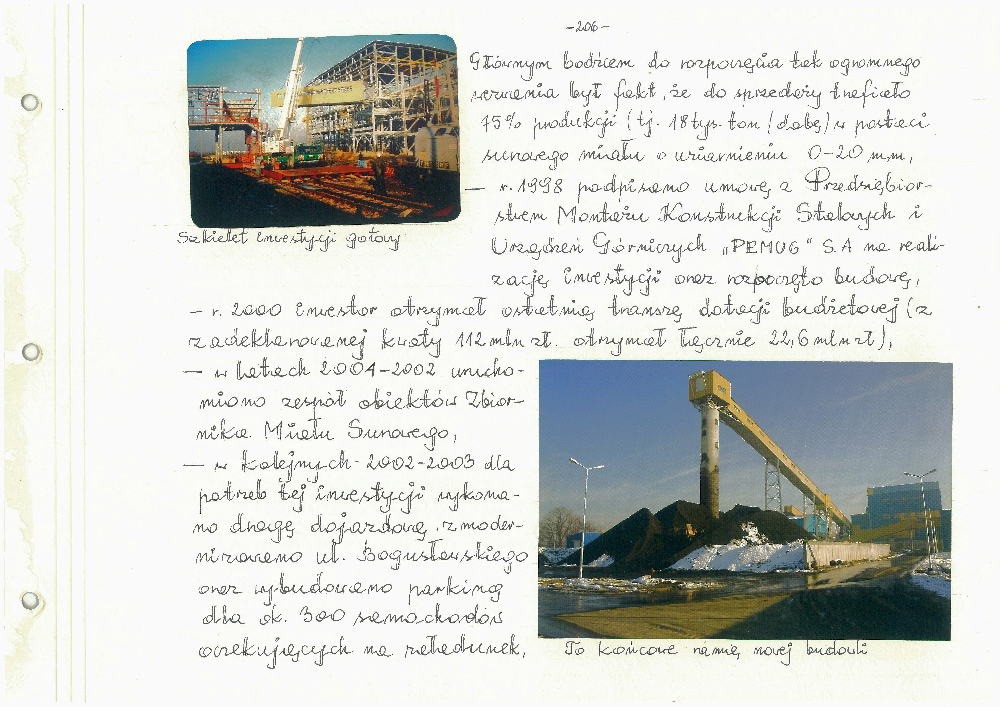 -206-
Głównym bodźcem do rozpoczęcia tak ogromnego
wezwania był fakt, że do sprzedaży trafiało
75% produkcji (tj. 18 tys. ton /dobę) w postaci
surowego miału o uziarnieniu 0-20 mm,
— r. 1998 podpisano umowę z Przedsiębior-
stwem Montażu Konstrukcji Stalowych i
Urządzeń Górniczych „PEMUG" S.A na reali-
zację inwestycji oraz rozpoczęto budowę,
Szkielet inwestycji gotowy
— r. 2000 inwestor otrzymał ostatnią transzę dotacji budżetowej (z
zadeklarowanej kwoty 112 mln zł. otrzymał łącznie 22,6 mln zł),
— w latach 2001-2002 urucho-
miono zespół obiektów Zbior-
nika Miału Surowego,
— w kolejnych 2002-2003 dla
potrzeb tej inwestycji wykona-
no drogę dojazdową, zmoder-
nizowano ul. Bogusławskiego
oraz wybudowano parking
dla ok. 300 samochodów
oczekujących na załadunek,
To końcowe ramię nowej budowli